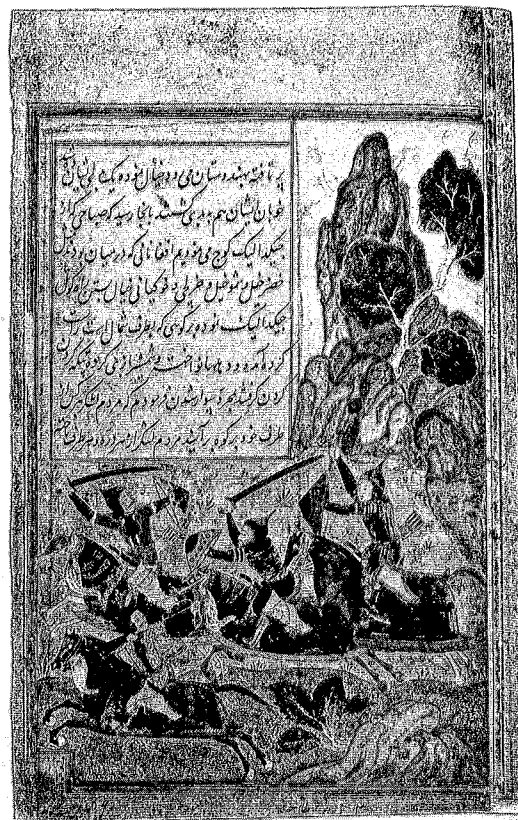 بر تافته بهندوستان می رود خیال نموده یک
خوبان ایشان هم بدی گشتند باینجا رسید که صباحی که از
جگدالیک کوچ می نمودیم افغانانی که در میان بودند مثل
خضر خیل و شمو خیل و خرلچی و خوگیانی خیال بستن راه کوتل
جگدالیک نموده بر کوهی که بطرف شمال است راست
کرده آمده و دهلها نواخته و شمشیر بازی کرده
کردن گرفتند بمجرد سوار شدن فرمودم که مردم لشکر هر کس از
طرف خود بر کوه برآیند مردم لشکر از هر دره و هر طرف تاخته